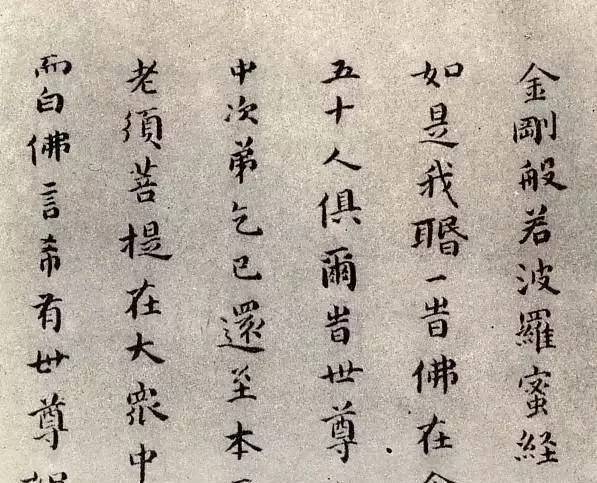 金剛般若波羅蜜経
如是我聞一時佛在舍
五十人俱爾時世尊
中次弟乞已還至本
老須菩提在大衆中
而白佛言希有世尊